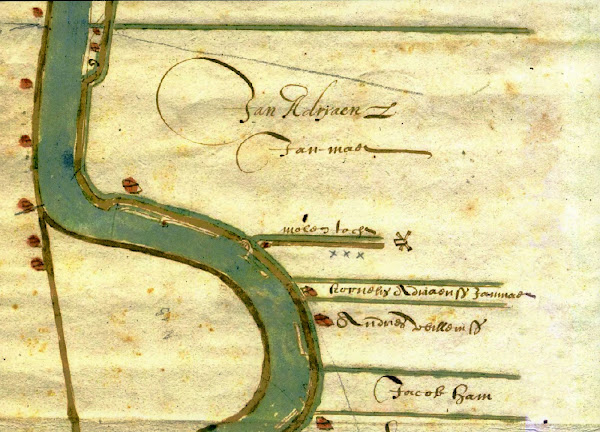 Jan Adriaen
Jan mae
molen toch
xxx
Cornelis Adriaensz Janmae
Andries Willemsz
Jacob Ham